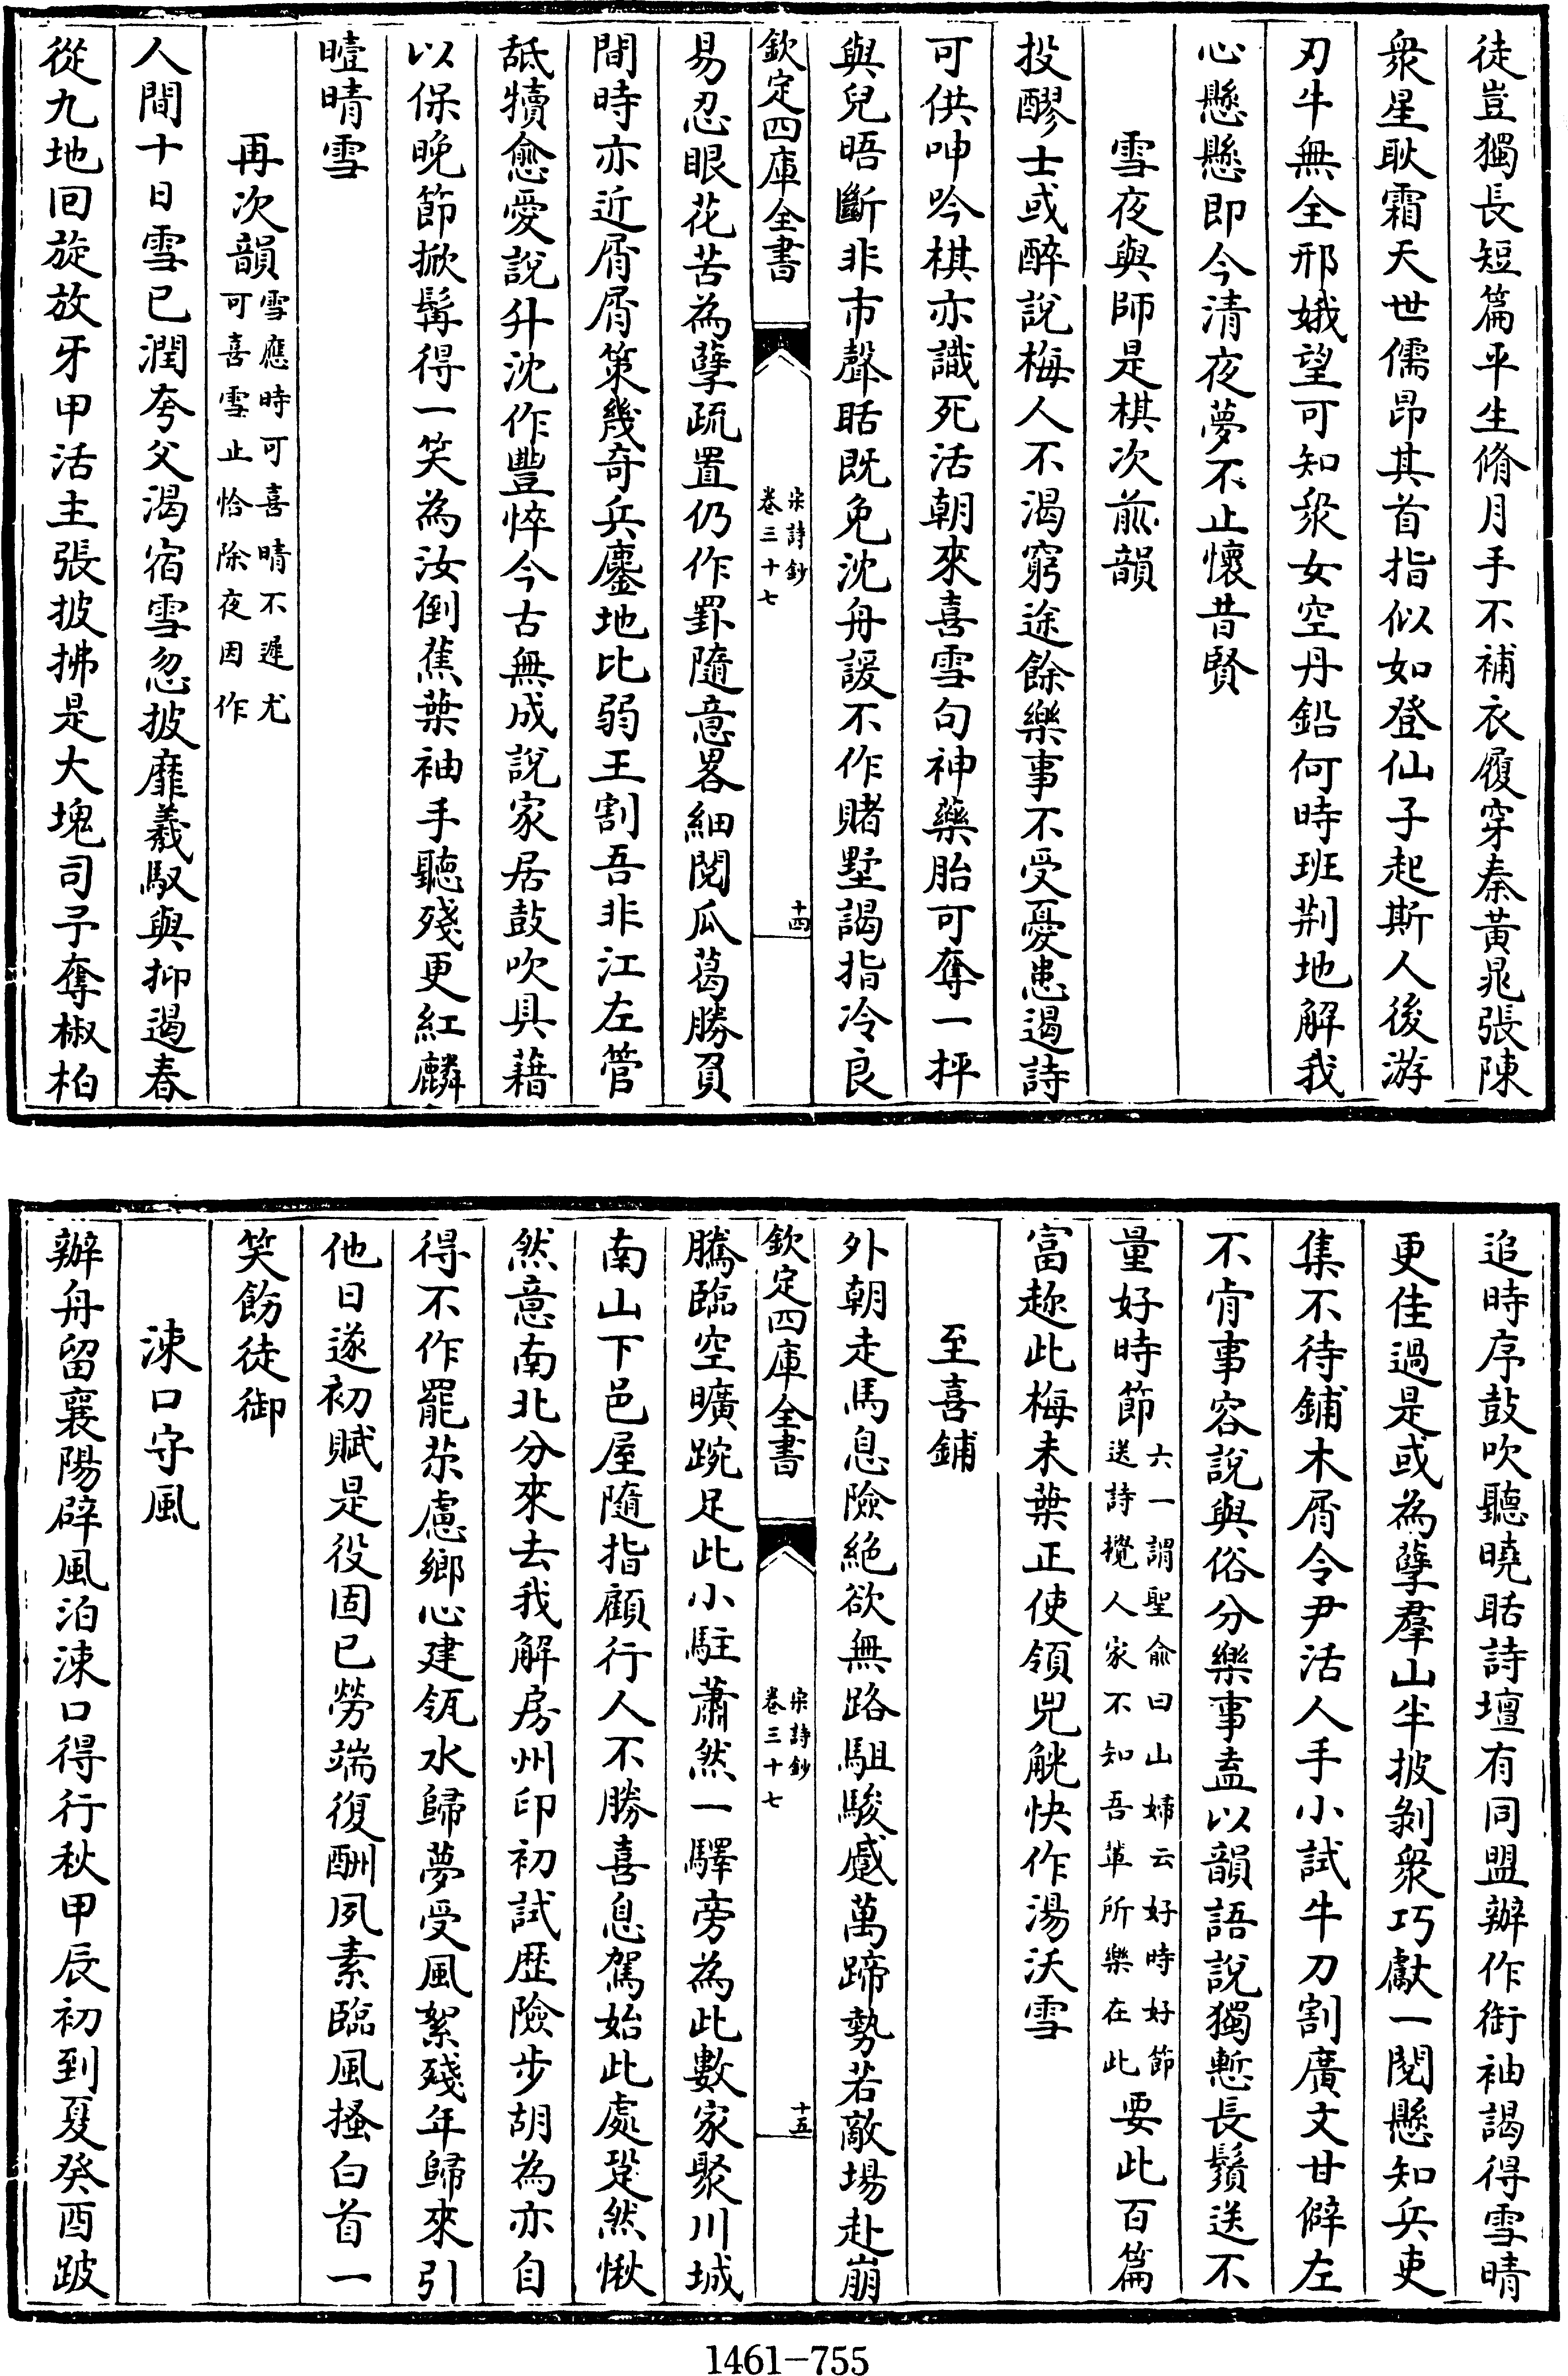 徒豈獨長短篇平生脩月手不補衣履穿秦黃晁張陳
衆星耿霜天世儒昂其首指似如登仙子起斯人後游
刃牛無全邢娥望可知衆女空丹鉛何時班荆地解我
心懸懸即今清夜夢不止懷昔賢
雪夜與師是棋次前韻
投醪士或醉說梅人不渴窮途餘樂事不受憂患遏詩
可供呻吟棋亦識死活朝來喜雪句神藥胎可奪一枰
與兒晤斷非市聲聒既免沈舟諼不作賭墅謁指冷良
欽定四庫全書
宋詩鈔
卷三十七
十四
易忍眼花苦為孽疏置仍作罫隨意畧細閱瓜葛勝負
間時亦近屑屑策幾奇兵鏖地比弱王割吾非江左管
舐犢愈愛說升沈作豐悴今古無成說家居鼓吹具藉
以保晚節掀髯得一笑為汝倒蕉葉袖手聽殘更紅麟
曀晴雪
再次韻
雪應時可喜晴不遲尤
可喜雪止恰除夜因作
人間十日雪已潤夸父渴宿雪忽披靡羲馭與抑遏春
從九地回旋放牙甲活主張披拂是大塊司予奪椒柏
追時序鼓吹聽曉聒詩壇有同盟辦作銜袖謁得雪晴
更佳過是或為孽羣山半披剝衆巧獻一閱懸知兵吏
集不待鋪木屑令尹活人手小試牛刀割廣文甘僻左
不肯事容說與俗分樂事盍以韻語說獨慙長鬚送不
量好時節
六一謂聖俞曰山婦云好時好節
送詩攪人家不知吾輩所樂在此
要此百篇
富趂此梅未葉正使領兕觥快作湯沃雪
至喜鋪
外朝走馬息險絶欲無路駔駿慼萬蹄勢若敵場赴崩
欽定四庫全書
宋詩鈔
卷三十七
十五
騰臨空曠踠足此小駐蕭然一驛旁為此數家聚川城
南山下邑屋隨指顧行人不勝喜息駕始此處跫然愀
然意南北分來去我解房州印初試歴險步胡為亦自
得不作罷苶慮鄉心建瓴水歸夢受風絮殘年歸來引
他日遂初賦是役固已勞端復酬夙素臨風搔白首一
笑飭徒御
涑口守風
辦舟留襄陽辟風泊涑口得行秋甲辰初到夏癸酉跛
1461-755